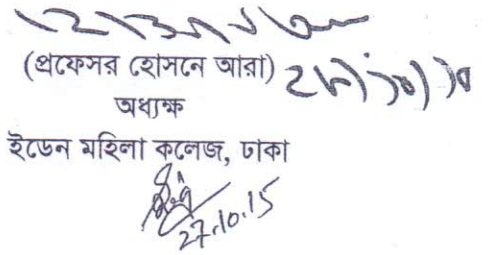 (প্রফেসর হোসনে আরা)
অধ্যক্ষ
ইডেন মহিলা কলেজ, ঢাকা
27.10.15